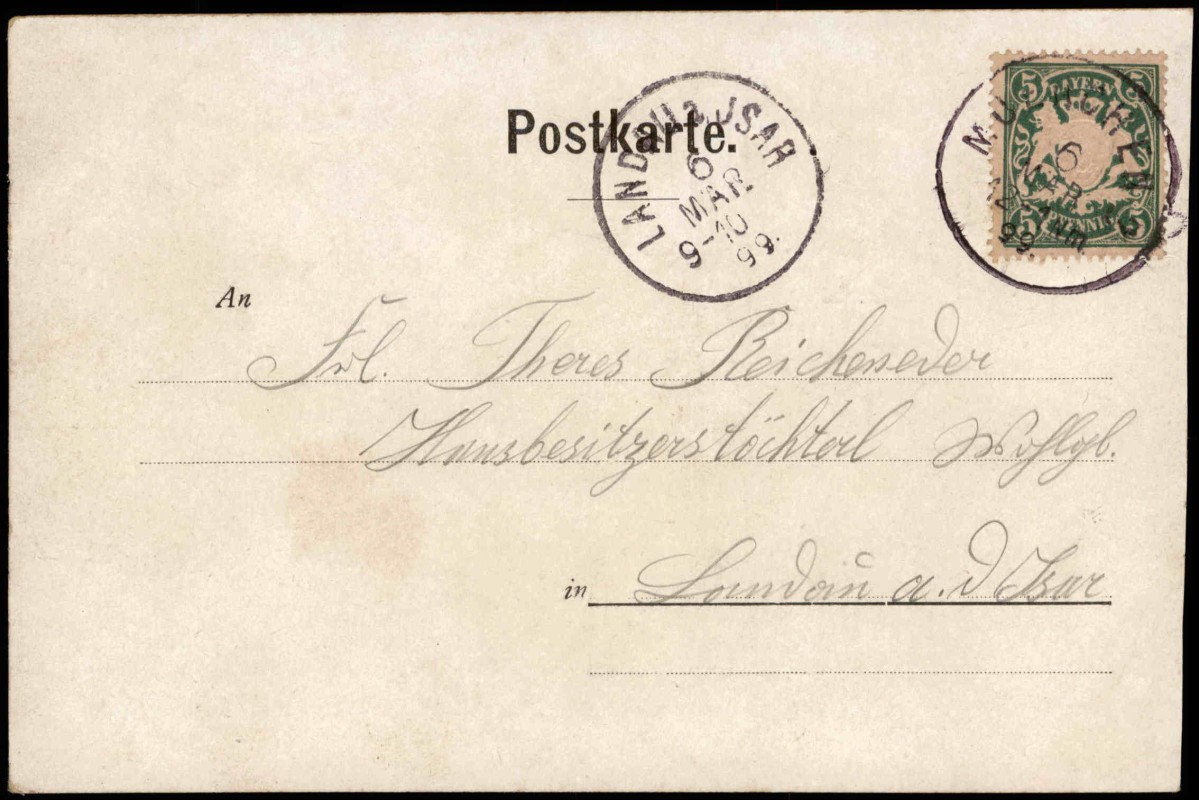 Postkarte.
LANDAU a. ISAR
6
MAR
9-10
99.
MUENCHEN
6
MAR
12-1 NM.
99.
5 BAYERN 5
5 PFENNIG 5
An
Frl. Theres Reicheneder
Hausbesitzerstöchterl Wohlgb.
in Landau a. d Isar